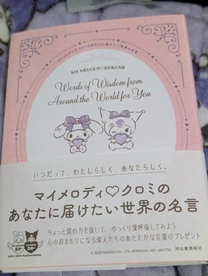 MY MELODY♡KUROMI
Words of Wisdom from
Around the World for You
いつだって、わたしらしく、あなたらしく。
マイメロディ♡クロミの
あなたに届けたい世界の名言
ちょっと肩の力を抜いて、ゆっくり深呼吸してみよう
心のおまもりになる偉人たちのあたたかな言葉のプレゼント
河出書房新社